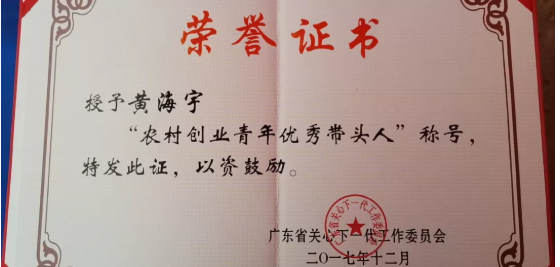 荣誉证书
授予黄海宇
“农村创业青年优秀带头人”称号，
特发此证，以资鼓励。
广东省关心下一代工作委员会
二〇一七年十二月